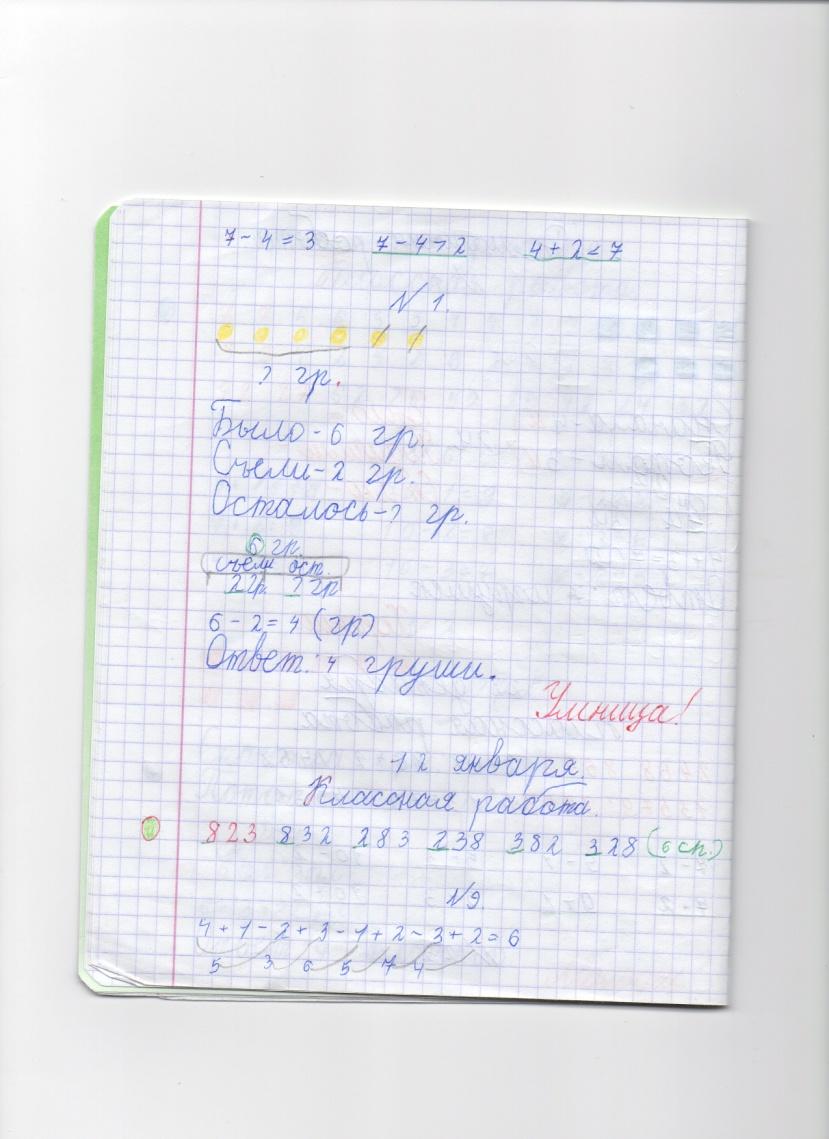 7 - 4 = 3 7 - 4 > 2 4 + 2 < 7
№ 1.
? гр.
Было - 6 гр.
Съели - 2 гр.
Осталось - ? гр.
6 гр.
съели ост.
2 гр. ? гр
6 - 2 = 4 (гр)
Ответ: 4 груши.
Умница!
12 января.
Классная работа.
823 832 283 238 382 328 (6 сп.)
№9.
4 + 1 - 2 + 3 - 1 + 2 - 3 + 2 = 6
5 3 6 5 7 4